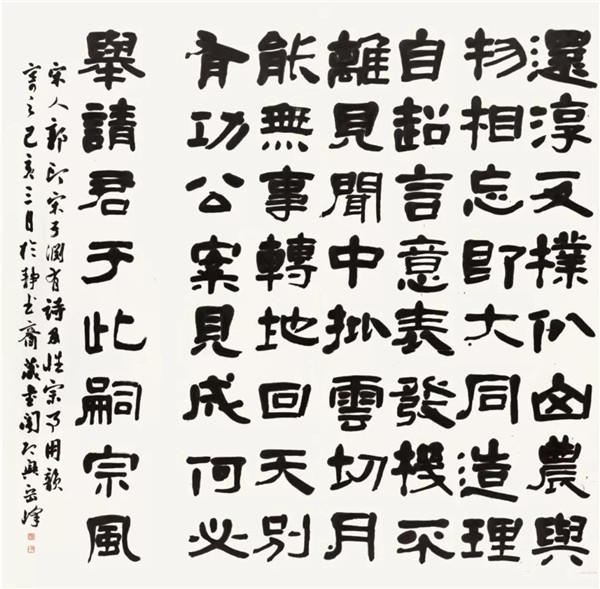 還淳反樸農與
物相忘即大同造理
自超言意表發機不
離見聞中批雲切月
能無事轉地回天別
有功公案見成何必
舉請君于此嗣宗風
宋人郭印宋子淵有詩及性宗事用韻
寄之己亥三月於靜齋